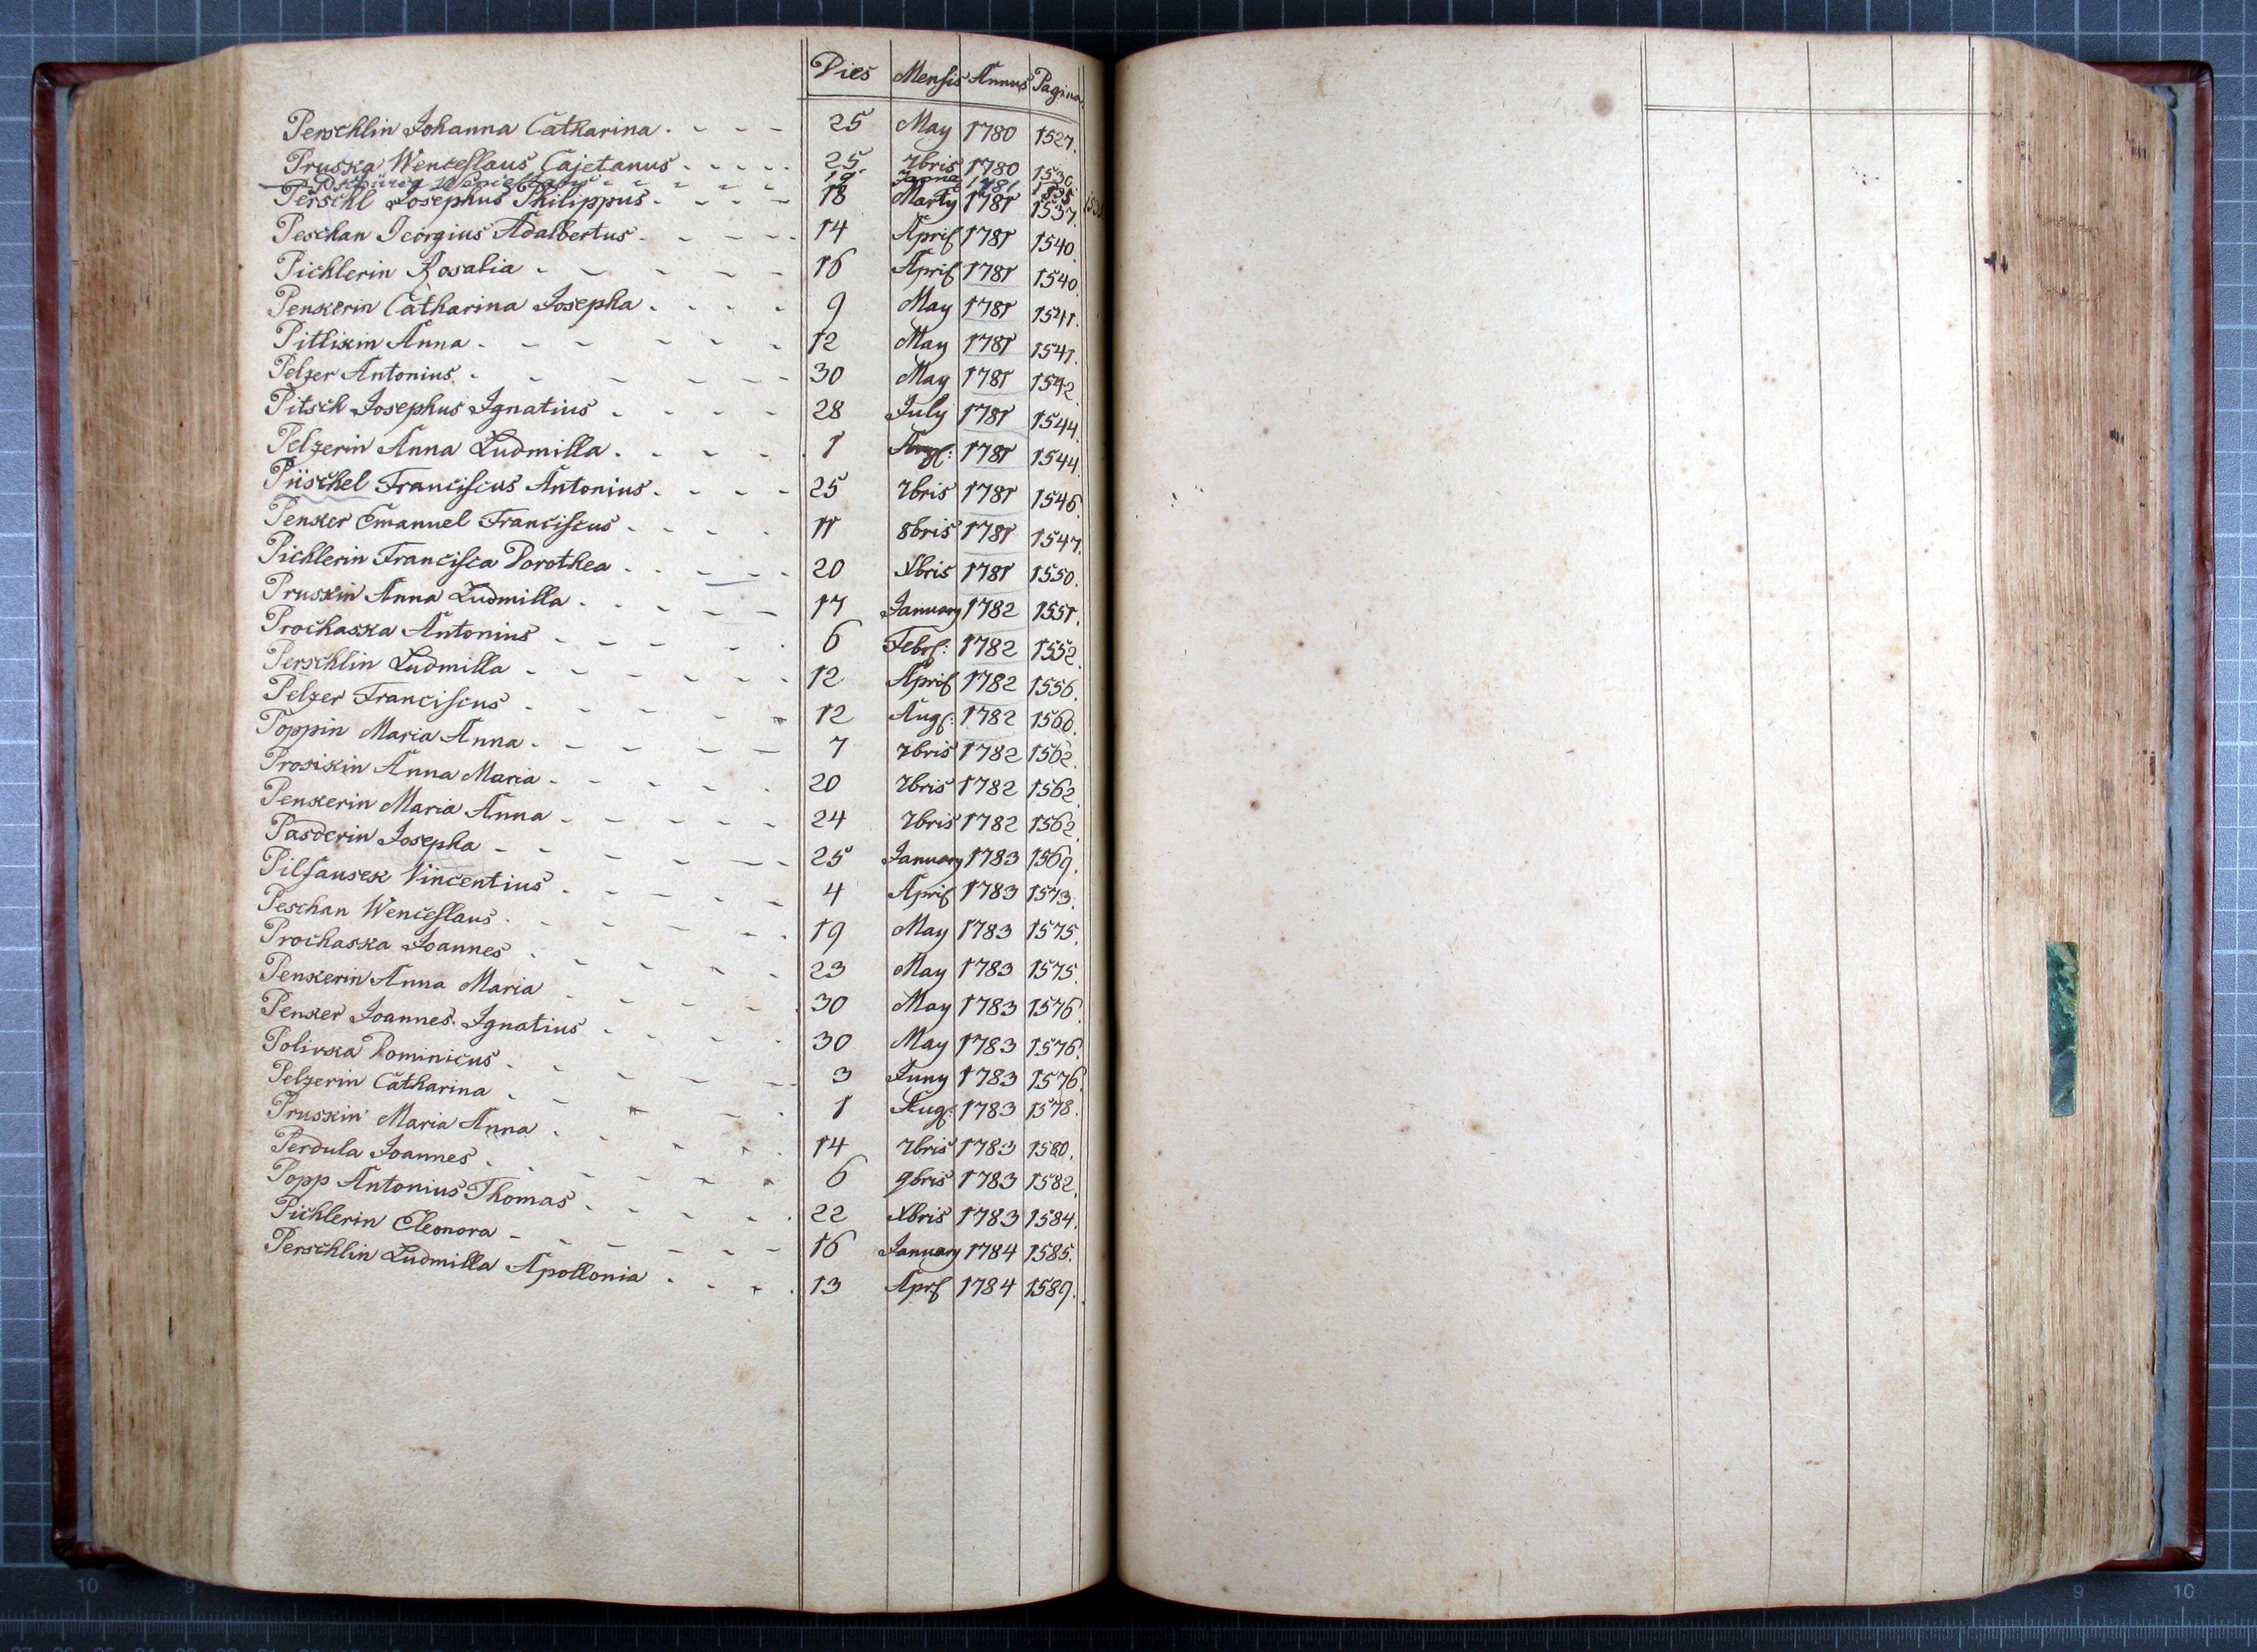 Dies Mensis Annus Pagina.
Perschlin Johanna Catharina. 25 May 1780 1527.
Pruska Wenceslaus Cajetanus 25 7bris 1780 1530
19 1781 1535
Perschl Josephus Philippus 18 Marty 1781 1537.
Peschan Georgius Adalbertus 14 April 1781 1540
Pichlerin Rosalia 16 April 1781 1540
Penkerin Catharina Josepha 9 May 1781 1541.
Pittikin Anna 12 May 1781 1541.
Pelzer Antonius 30 May 1781 1542
Pitsch Josephus Ignatius 28 July 1781 1544.
Pelzerin Anna Ludmilla 1 Aug: 1781 1544
Püschel Franciscus Antonius 25 7bris 1781 1546.
Penker Emanuel Franciscus 11 8bris 1781 1547.
Pichlerin Francisca Dorothea 20 Xbris 1781 1550.
Pruskin Anna Ludmilla 17 January 1782 1551.
Prochaska Antonius 6 Feb: 1782 1552.
Perschlin Ludmilla 12 April 1782 1556.
Pelzer Franciscus 12 Aug: 1782 1560.
Poppin Maria Anna 7 7bris 1782 1562.
Prosikin Anna Maria 20 7bris 1782 1562
Penkerin Maria Anna 24 7bris 1782 1562
Pasderin Josepha 25 January 1783 1569.
Pilsausek Vincentius 4 April 1783 1573.
Peschan Wenceslaus 19 May 1783 1575.
Prochaska Joannes 23 May 1783 1575.
Penkerin Anna Maria 30 May 1783 1576.
Penker Joannes Ignatius 30 May 1783 1576.
Polivka Dominicus 3 Juny 1783 1576.
Pelzerin Catharina 1 Aug: 1783 1578.
Pruskin Maria Anna 14 7bris 1783 1580.
Perdula Joannes 6 9bris 1783 1582.
Popp Antonius Thomas 22 Xbris 1783 1584.
Pichlerin Eleonora 16 January 1784 1585.
Perschlin Ludmilla Apollonia 13 April 1784 1589.
10 9 9 10